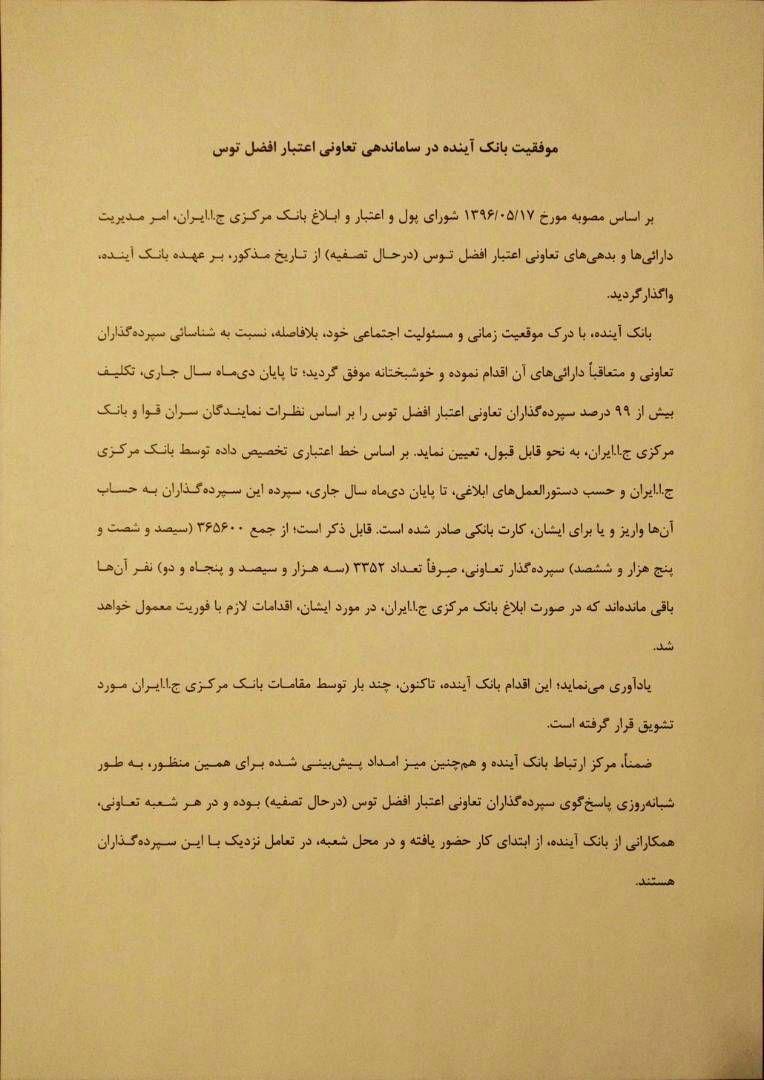 موفقیت بانک آینده در ساماندهی تعاونی اعتبار افضل توس
بر اساس مصوبه مورخ ۱۳۹۶/۰۵/۱۷ شورای پول و اعتبار و ابلاغ بانک مرکزی ج.ا.ایران، امر مدیریت
دارائی‌ها و بدهی‌های تعاونی اعتبار افضل توس (درحال تصفیه) از تاریخ مذکور، بر عهده بانک آینده،
واگذارگردید.
بانک آینده، با درک موقعیت زمانی و مسئولیت اجتماعی خود، بلافاصله، نسبت به شناسائی سپرده‌گذاران
تعاونی و متعاقباً دارائی‌های آن اقدام نموده و خوشبختانه موفق گردید؛ تا پایان دی‌ماه سال جاری، تکلیف
بیش از ۹۹ درصد سپرده‌گذاران تعاونی اعتبار افضل توس را بر اساس نظرات نمایندگان سران قوا و بانک
مرکزی ج.ا.ایران، به نحو قابل قبول، تعیین نماید. بر اساس خط اعتباری تخصیص داده توسط بانک مرکزی
ج.ا.ایران و حسب دستورالعمل‌های ابلاغی، تا پایان دی‌ماه سال جاری، سپرده این سپرده‌گذاران به حساب
آن‌ها واریز و یا برای ایشان، کارت بانکی صادر شده است. قابل ذکر است؛ از جمع ۳۶۵۶۰۰ (سیصد و شصت و
پنج هزار و ششصد) سپرده‌گذار تعاونی، صِرفاً تعداد ۳۳۵۲ (سه هزار و سیصد و پنجاه و دو) نفر آن‌ها
باقی مانده‌اند که در صورت ابلاغ بانک مرکزی ج.ا.ایران، در مورد ایشان، اقدامات لازم با فوریت معمول خواهد
شد.
یادآوری می‌نماید؛ این اقدام بانک آینده، تاکنون، چند بار توسط مقامات بانک مرکزی ج.ا.ایران مورد
تشویق قرار گرفته است.
ضمناً، مرکز ارتباط بانک آینده و هم‌چنین میز امداد پیش‌بینی شده برای همین منظور، به طور
شبانه‌روزی پاسخ‌گوی سپرده‌گذاران تعاونی اعتبار افضل توس (درحال تصفیه) بوده و در هر شعبه تعاونی،
همکارانی از بانک آینده، از ابتدای کار حضور یافته و در محل شعبه، در تعامل نزدیک با این سپرده‌گذاران
هستند.